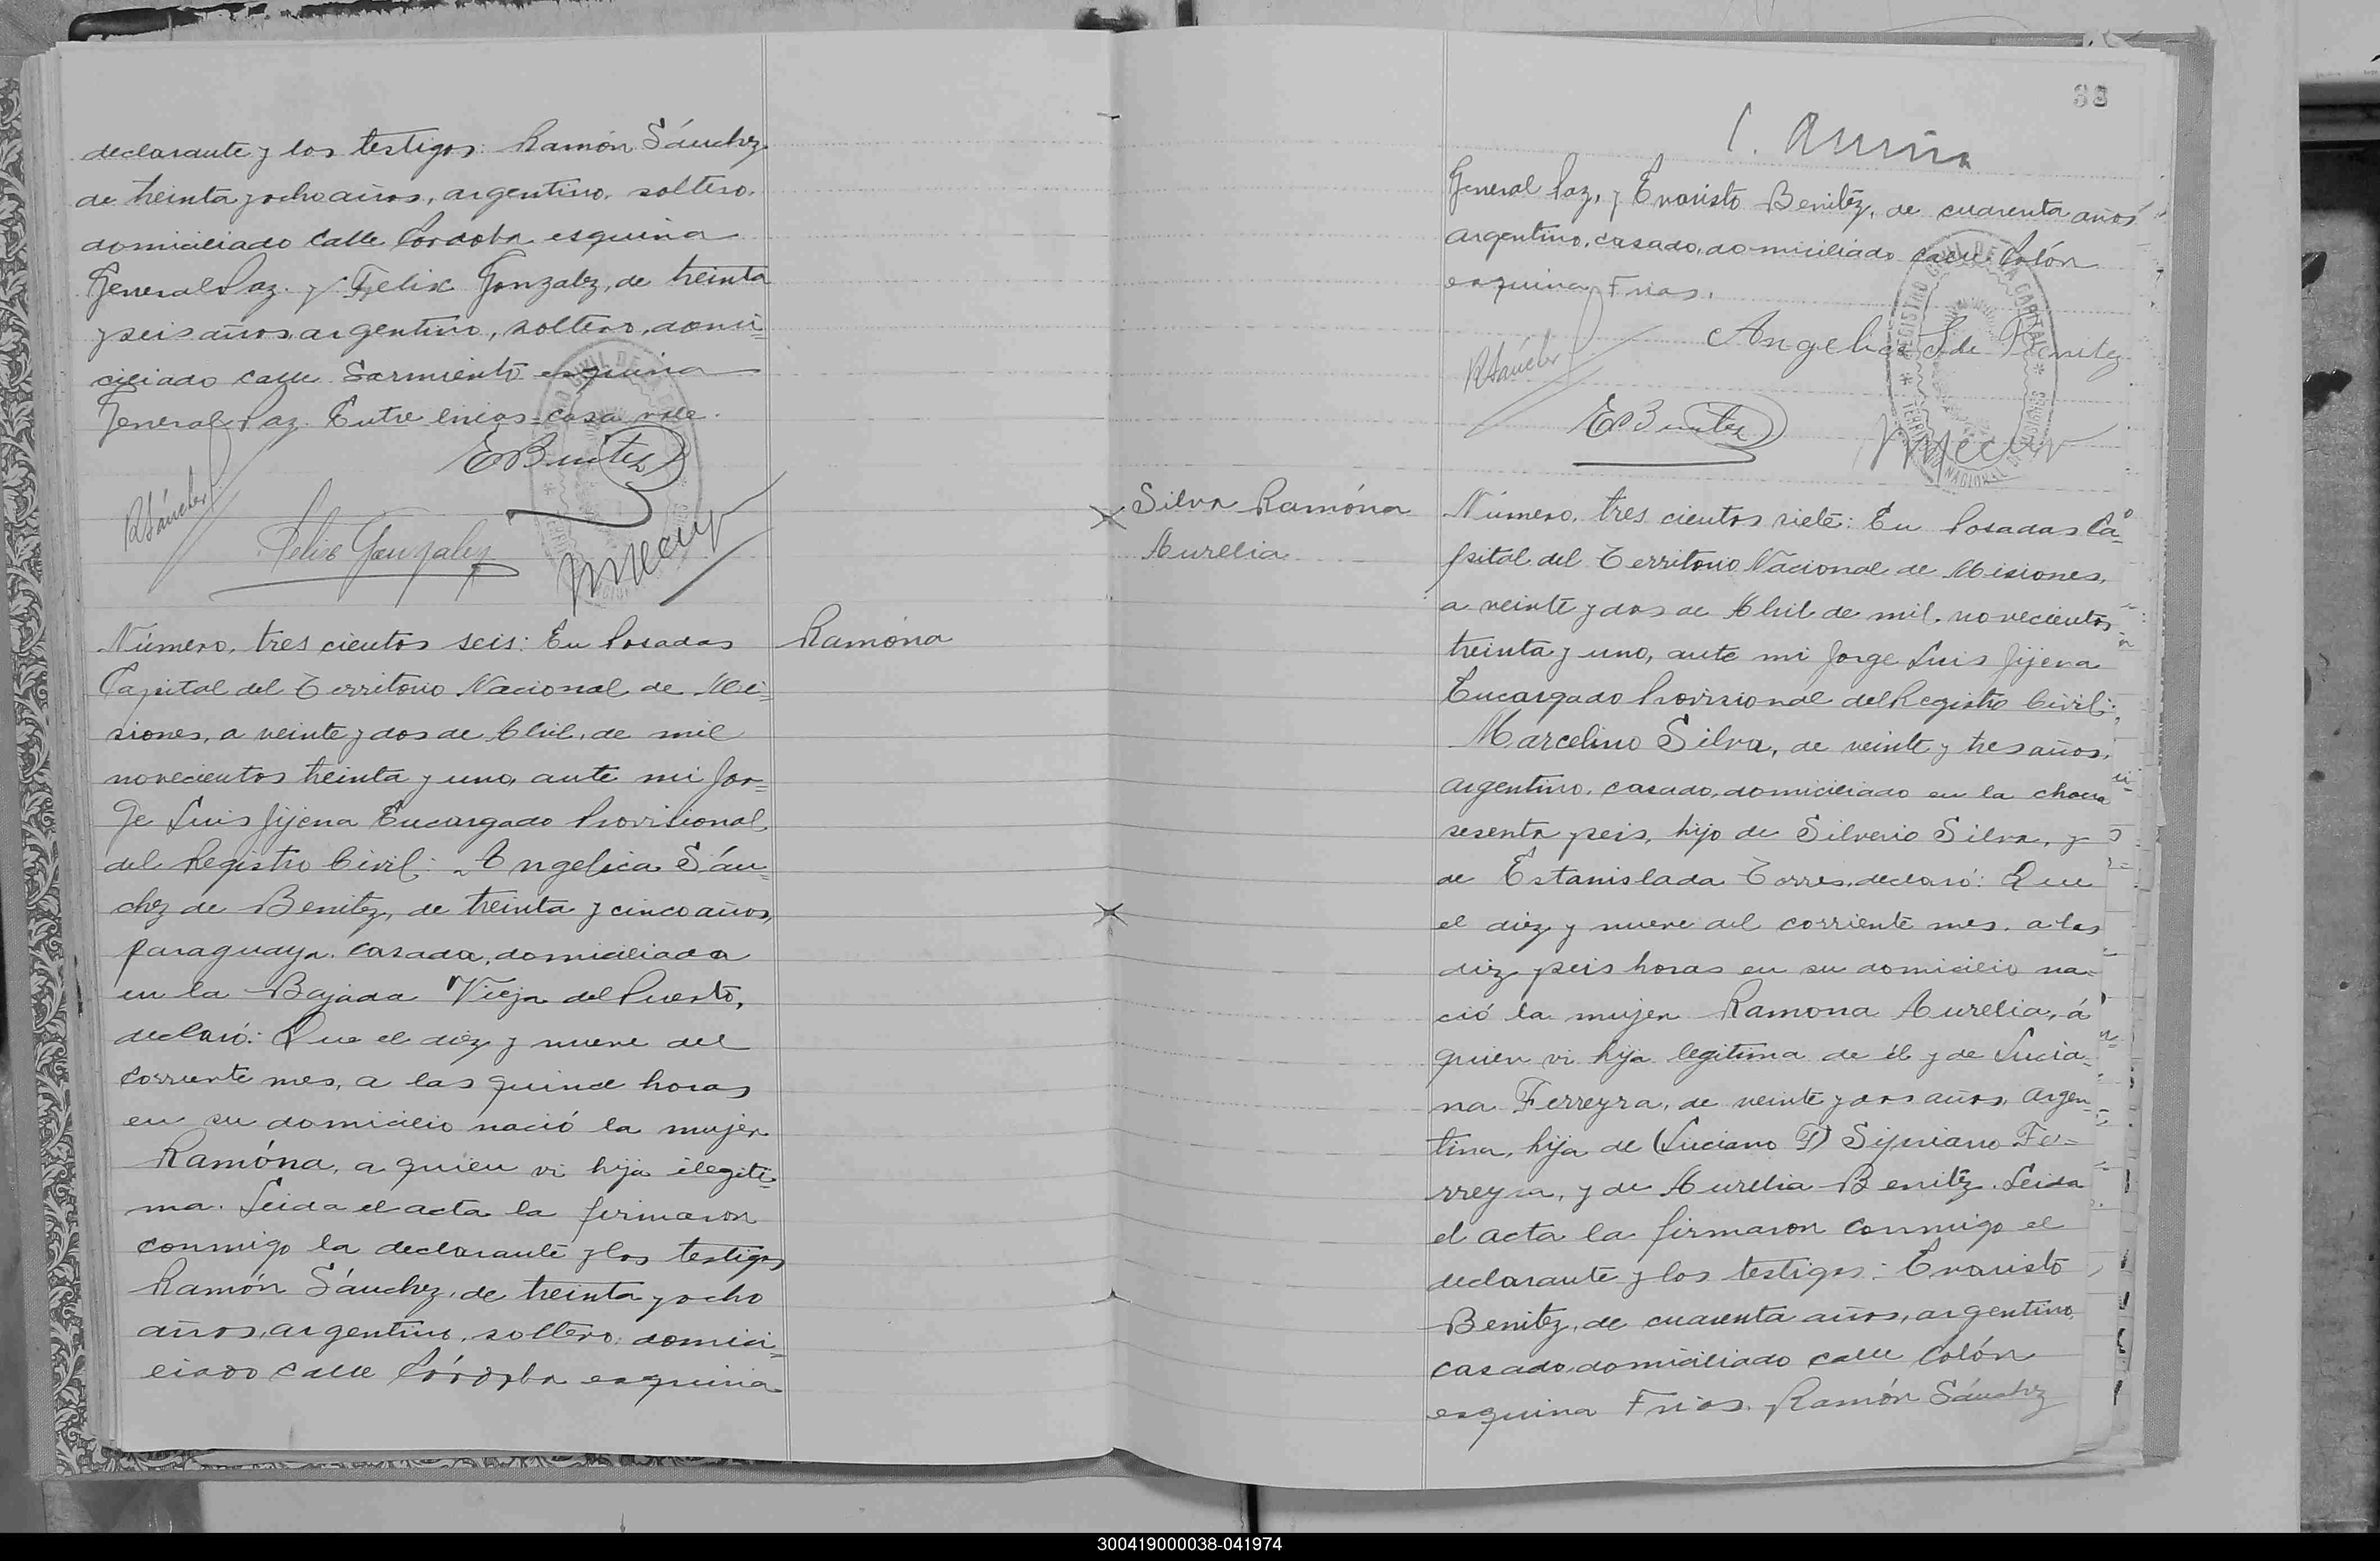 declarante y los testigos: Ramón Sánchez
de treinta y ocho años, argentino, soltero,
domiciliado calle Córdoba esquina
General Paz. y Felix Gonzalez, de treinta
y seis años, argentino, soltero, domi=
ciliado calle Sarmiento esquina
General Paz. Entre lineas=casa vale.
EBenitez
RSánchez
Felix Gonzalez
Número, tres cientos seis: En Posadas
Capital del Territorio Nacional de Mi=
siones, a veinte y dos de Abril, de mil
novecientos treinta y uno, ante mi Jor=
ge Luis Jijena Encargado Provisional
del Registro Civil: Angelica Sán=
chez de Benitez, de treinta y cinco años,
paraguaya, casada, domiciliada
en la Bajada Vieja del Puerto,
declaró: Que el diez y nueve del
corriente mes, a las quince horas
en su domicilio nació la mujer
Ramóna, a quien vi hija ilegiti=
ma. Leida el acta la firmaron
conmigo la declarante y los testigos
Ramón Sánchez, de treinta y ocho
años, argentino, soltero, domici=
liado calle Córdoba esquina
Ramóna
38
General Paz, y Evaristo Benitez, de cuarenta años
argentino, casado, domiciliado calle Colón
esquina Frias.
Angelica S de Benitez
RSánchez
EBenitez
REGISTRO CIVIL DE LA CAPITAL
TERRITORIO NACIONAL DE MISIONES
Silva Ramóna
Aurelia
Número, tres cientos siete: En Posadas Ca=
pital del Territorio Nacional de Misiones,
a veinte y dos de Abril de mil, novecientos
treinta y uno, ante mi Jorge Luis Jijena
Encargado Provisional del Registro Civil:
Marcelino Silva, de veinte y tres años,
argentino, casado, domiciliado en la chacra
sesenta y seis, hijo de Silverio Silva, y
de Estanislada Torres, declaró: Que
el diez y nueve del corriente mes, a las
diez y seis horas en su domicilio na=
ció la mujer Ramona Aurelia, á
quien vi hija legitima de él y de Lucia=
na Ferreyra, de veinte y dos años, argen=
tina, hija de (Luciano F) Sipriano Fe=
rreyra, y de Aurelia Benitez. Leida
el acta la firmaron conmigo el
declarante y los testigos: Evaristo
Benitez, de cuarenta años, argentino,
casado, domiciliado calle Colón
esquina Frias. Ramón Sánchez
300419000038-041974